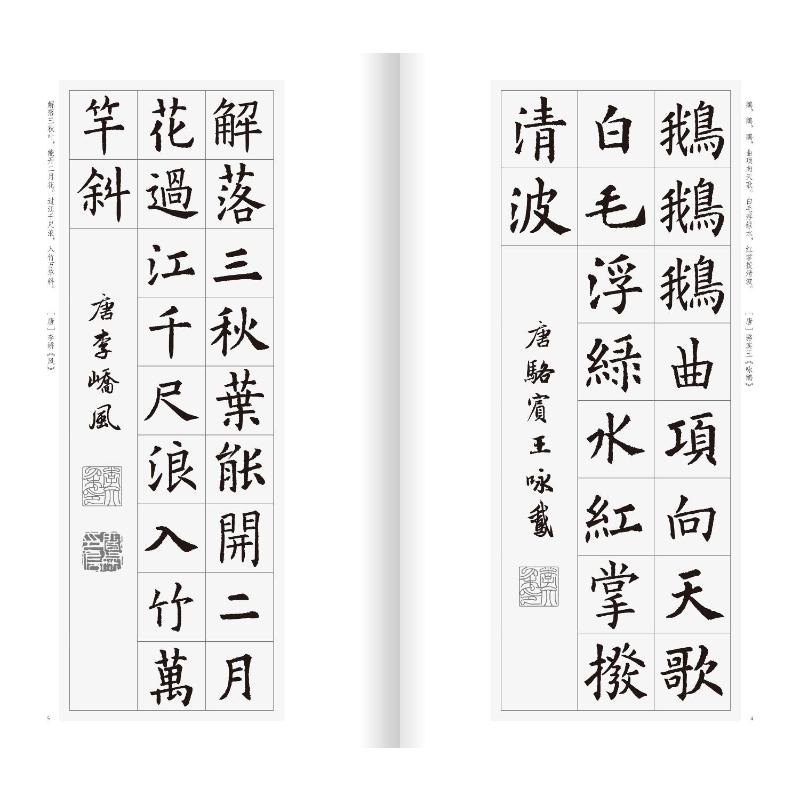 鵝、鵝、鵝，曲項向天歌。白毛浮綠水，紅掌撥清波。
［唐］駱賓王《咏鵝》
鵝鵝鵝曲項向天歌
白毛浮綠水紅掌撥
清波
唐駱賓王咏鵝
4
解落三秋葉
能開二月
花過江千尺浪入竹萬
竿斜
唐李嶠風
解落三秋叶，能开二月花。过江千尺浪，入竹万竿斜。
［唐］李嶠《风》
5